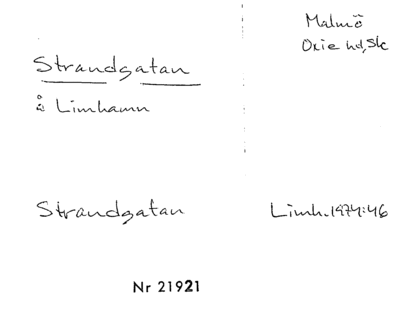 Malmö
Oxie hd, Sk
Strandgatan
å Limhamn
Strandgatan
Limh. 1974:46
Nr 21921